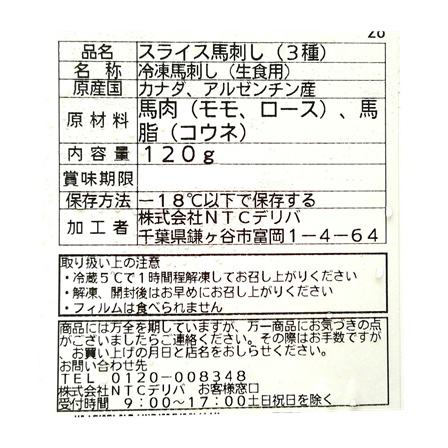 品名 スライス馬刺し(3種)
名 称 冷凍馬刺し(生食用)
原産国 カナダ、アルゼンチン産
原材料 馬肉(モモ、ロース)、馬
脂(コウネ)
内容量 120g
賞味期限
保存方法 −18℃以下で保存する
加工者 株式会社NTCデリバ
千葉県鎌ヶ谷市富岡1−4−64
取り扱い上の注意
・冷蔵5℃で1時間程解凍してお召し上がりください
・解凍、開封後はお早めにお召し上がりください
・フィルムは食べられません
商品には万全を期していますが、万一商品にお気づきの点
がございましたらご連絡ください。その際はお手数ですが、
お買い上げの月日と店名をおしらせください。
お問い合わせ先
TEL 0120−008348
株式会社NTCデリバ お客様窓口
受付時間 9:00〜17:00土日祝日を除く